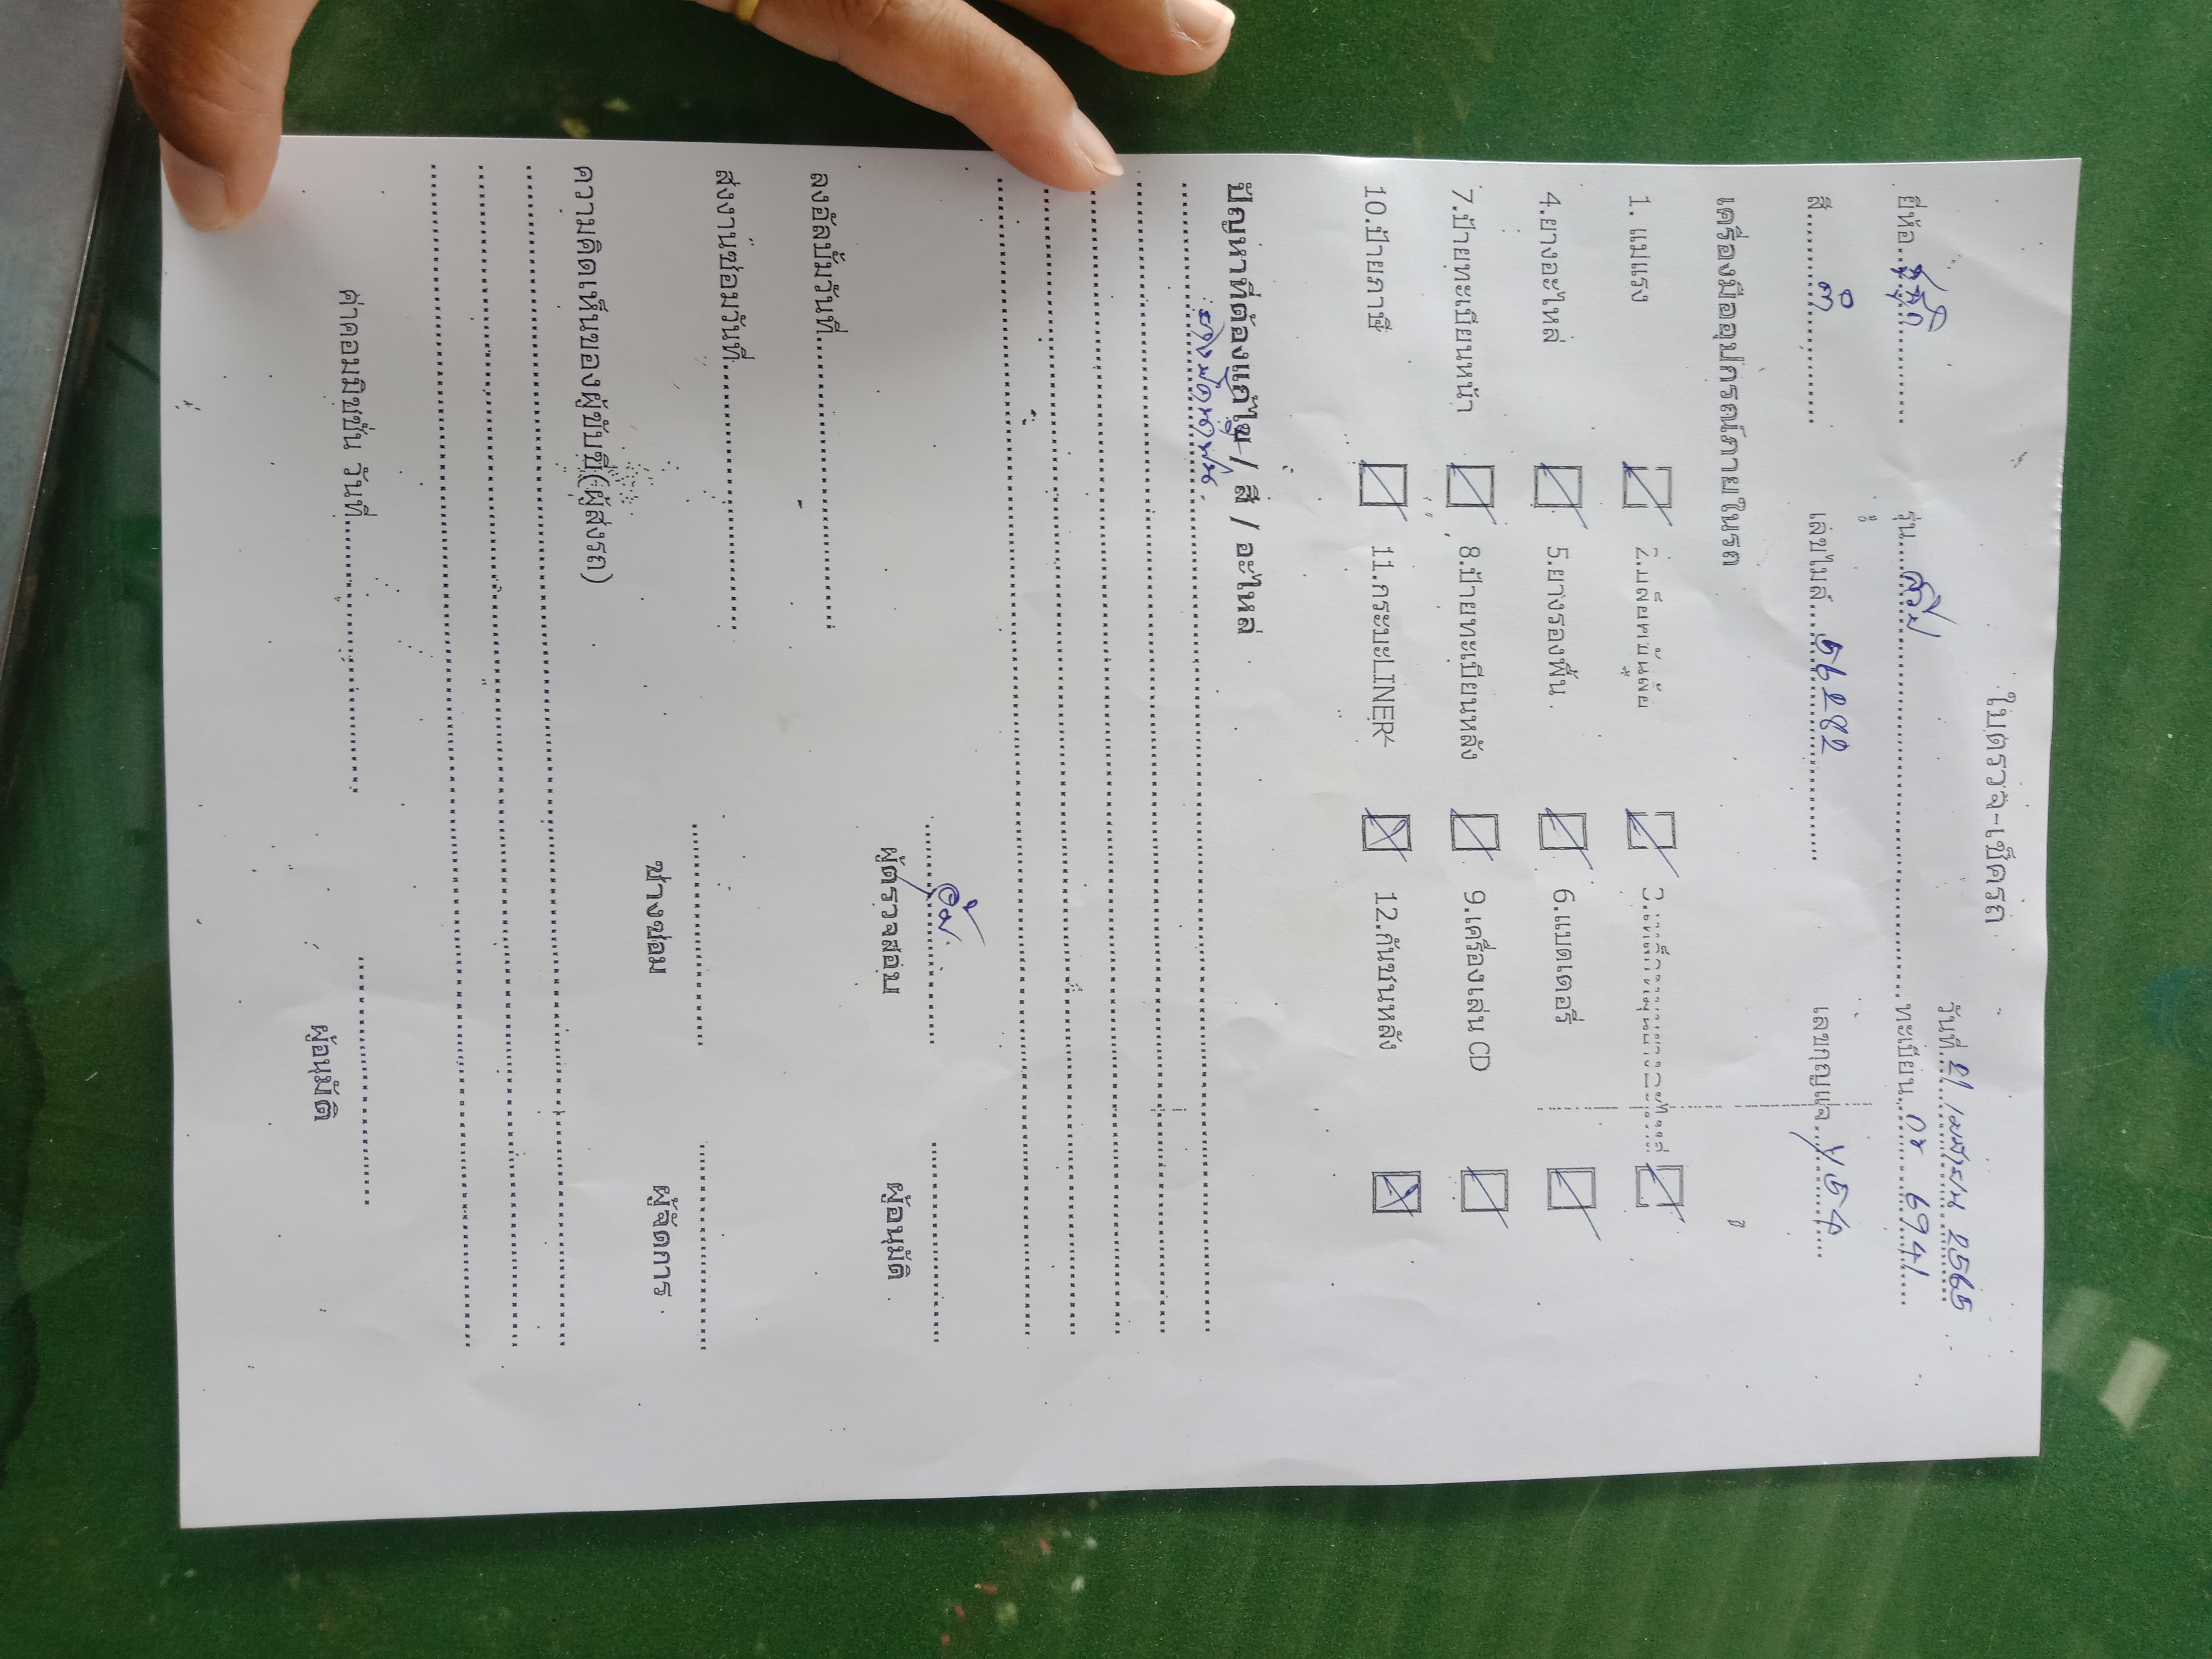 ใบตรวจ-เช็ครถ
วันที่ 21 เมษายน 2565
ยี่ห้อ ซูซูกิ รุ่น สวีฟ ทะเบียน กท 6941
สี ดำ เลขไมล์ 56282 เลขกุญแจ
เครื่องมืออุปกรณ์ภายในรถ
1. แม่แรง 2. 3.
4.ยางอะไหล่ 5.ยางรองพื้น 6.แบตเตอรี่
7.ป้ายทะเบียนหน้า 8.ป้ายทะเบียนหลัง 9.เครื่องเล่น CD
10.ป้ายภาษี 11.กระบะLINER 12.กันชนหลัง
ปัญหาที่ต้องแก้ไข / สี / อะไหล่
ผู้ตรวจสอบ ผู้อนุมัติ
ลงอัลบั้มวันที่
ส่งงานซ่อมวันที่
ช่างซ่อม ผู้จัดการ
ความคิดเห็นของผู้ขับขี่(ผู้ส่งรถ)
ค่าคอมมิชชั่น วันที่
ผู้อนุมัติ